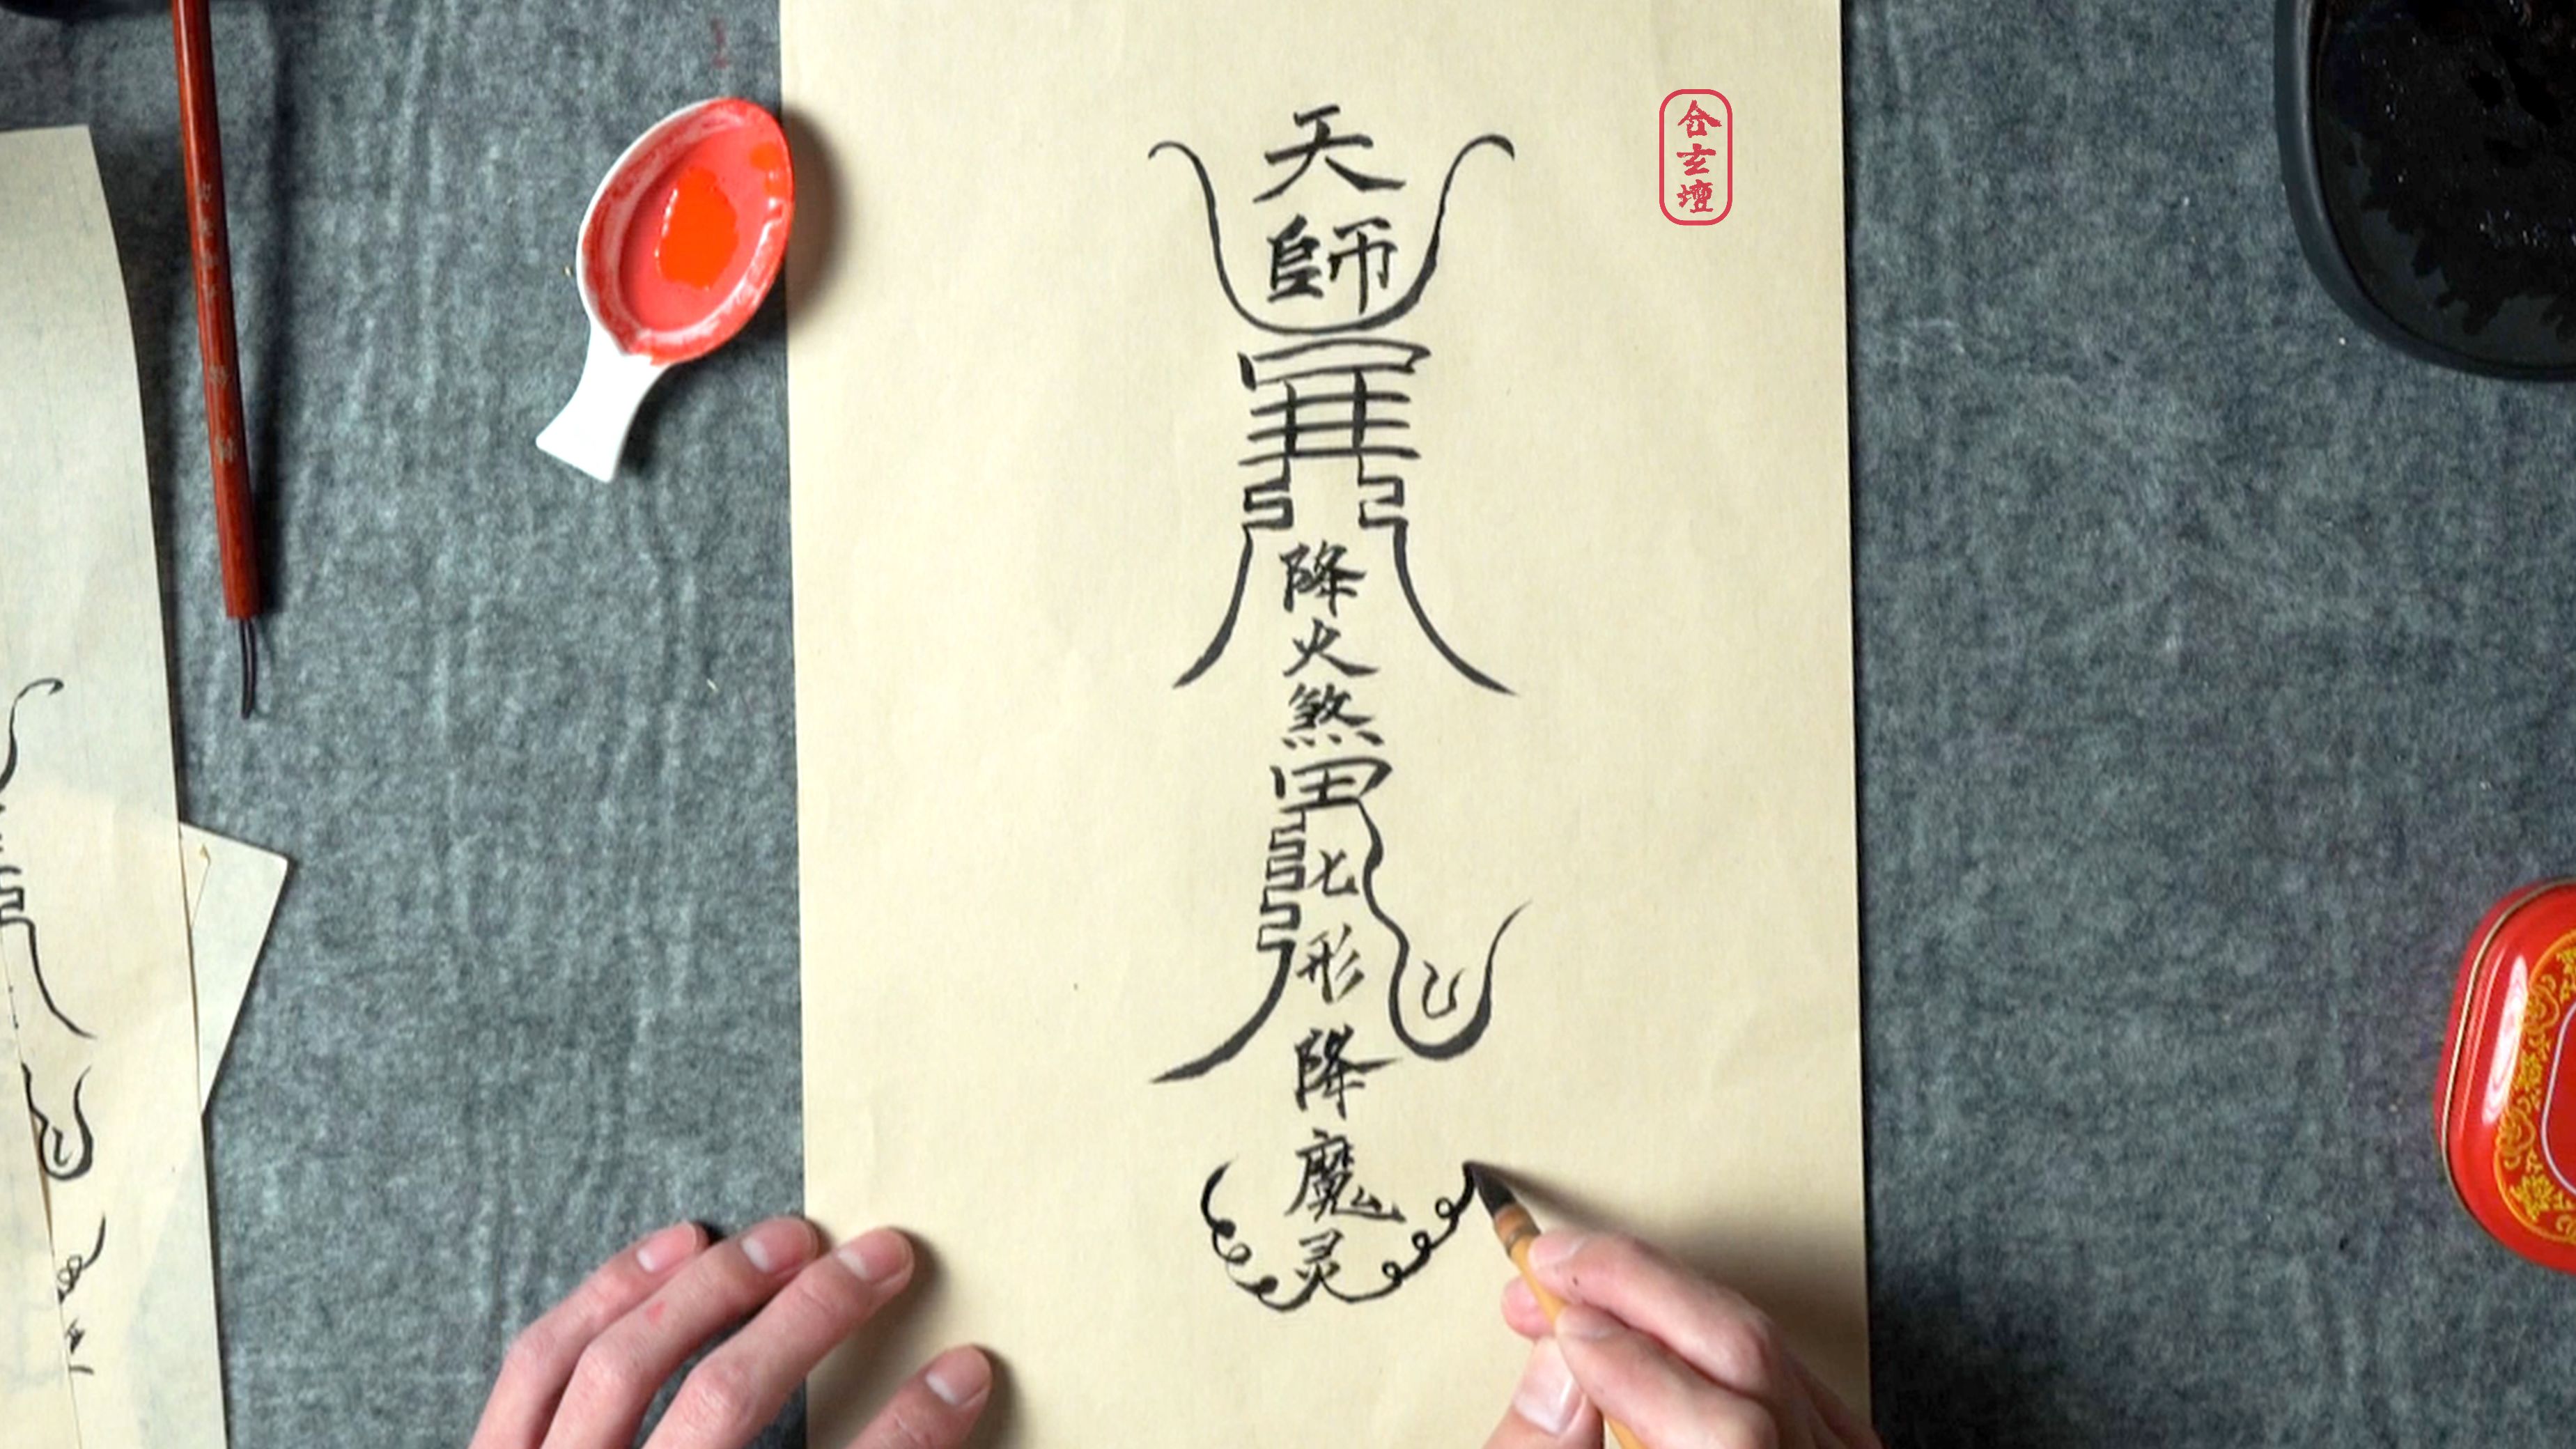 天
師
降
火
煞
七
形
降
魔
灵
仚玄壇